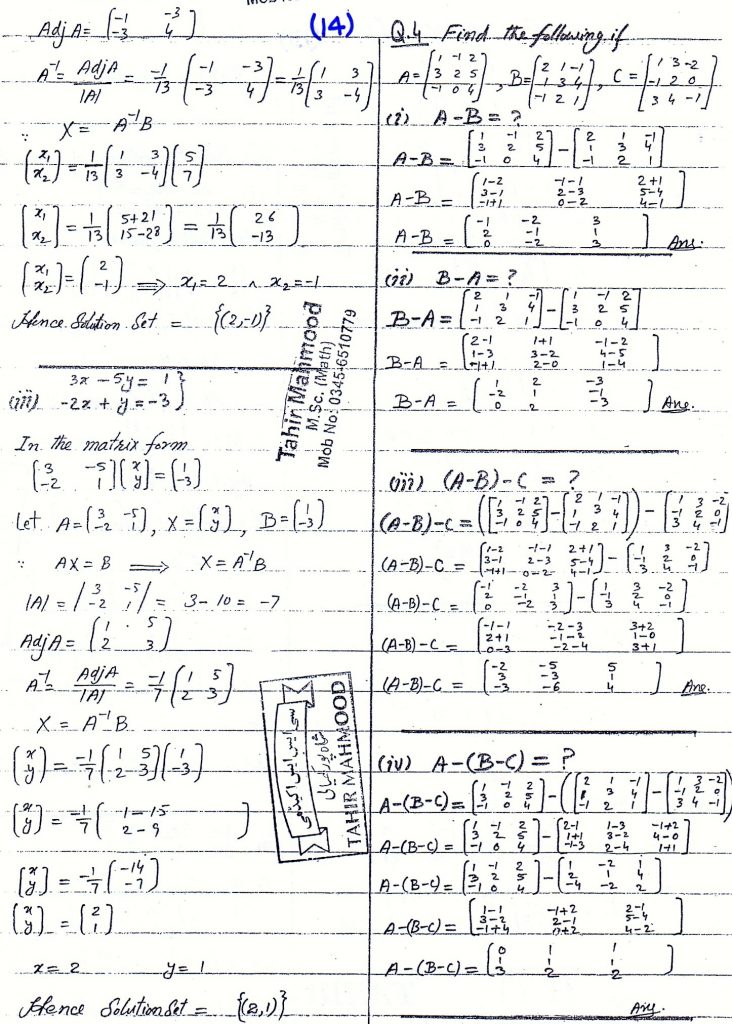 (14)
Adj A = [-1 -3; -3 4]
A⁻¹ = Adj A / |A| = -1/13 [-1 -3; -3 4] = 1/13 [1 3; 3 -4]
∵ X = A⁻¹B
[x₁; x₂] = 1/13 [1 3; 3 -4] [5; 7]
[x₁; x₂] = 1/13 [5+21; 15-28] = 1/13 [26; -13]
[x₁; x₂] = [2; -1] ⟹ x₁ = 2 ∧ x₂ = -1
Hence Solution Set = {(2,-1)}
(iii) 3x - 5y = 1
-2x + y = -3 }
In the matrix form
[3 -5; -2 1] [x; y] = [1; -3]
Let A = [3 -5; -2 1], X = [x; y], B = [1; -3]
∵ AX = B ⟹ X = A⁻¹B
|A| = |3 -5; -2 1| = 3 - 10 = -7
Adj A = [1 5; 2 3]
A⁻¹ = Adj A / |A| = -1/7 [1 5; 2 3]
X = A⁻¹B
[x; y] = -1/7 [1 5; 2 3] [1; -3]
[x; y] = -1/7 [1-15; 2-9]
[x; y] = -1/7 [-14; -7]
[x; y] = [2; 1]
x = 2 y = 1
Hence Solution Set = {(2,1)}
Tahir Mahmood
M.Sc. (Math)
Mob No: 0345-6510779
سی ایس ایس اکیڈمی
TAHIR MAHMOOD
Q.4 Find the following if
A = [1 -1 2; 3 2 5; -1 0 4], B = [2 1 -1; 1 3 4; -1 2 1], C = [1 3 -2; -1 2 0; 3 4 -1]
(i) A-B = ?
A-B = [1 -1 2; 3 2 5; -1 0 4] - [2 1 -1; 1 3 4; -1 2 1]
A-B = [1-2 -1-1 2+1; 3-1 2-3 5-4; -1+1 0-2 4-1]
A-B = [-1 -2 3; 2 -1 1; 0 -2 3] Ans.
(ii) B-A = ?
B-A = [2 1 -1; 1 3 4; -1 2 1] - [1 -1 2; 3 2 5; -1 0 4]
B-A = [2-1 1+1 -1-2; 1-3 3-2 4-5; -1+1 2-0 1-4]
B-A = [1 2 -3; -2 1 -1; 0 2 -3] Ans.
(iii) (A-B)-C = ?
(A-B)-C = ([1 -1 2; 3 2 5; -1 0 4] - [2 1 -1; 1 3 4; -1 2 1]) - [1 3 -2; -1 2 0; 3 4 -1]
(A-B)-C = [1-2 -1-1 2+1; 3-1 2-3 5-4; -1+1 0-2 4-1] - [1 3 -2; -1 2 0; 3 4 -1]
(A-B)-C = [-1 -2 3; 2 -1 1; 0 -2 3] - [1 3 -2; -1 2 0; 3 4 -1]
(A-B)-C = [-1-1 -2-3 3+2; 2+1 -1-2 1-0; 0-3 -2-4 3+1]
(A-B)-C = [-2 -5 5; 3 -3 1; -3 -6 4] Ans.
(iv) A-(B-C) = ?
A-(B-C) = [1 -1 2; 3 2 5; -1 0 4] - ([2 1 -1; 1 3 4; -1 2 1] - [1 3 -2; -1 2 0; 3 4 -1])
A-(B-C) = [1 -1 2; 3 2 5; -1 0 4] - [2-1 1-3 -1+2; 1+1 3-2 4-0; -1-3 2-4 1+1]
A-(B-C) = [1 -1 2; 3 2 5; -1 0 4] - [1 -2 1; 2 1 4; -4 -2 2]
A-(B-C) = [1-1 -1+2 2-1; 3-2 2-1 5-4; -1+4 0+2 4-2]
A-(B-C) = [0 1 1; 1 1 1; 3 2 2]
Ans.